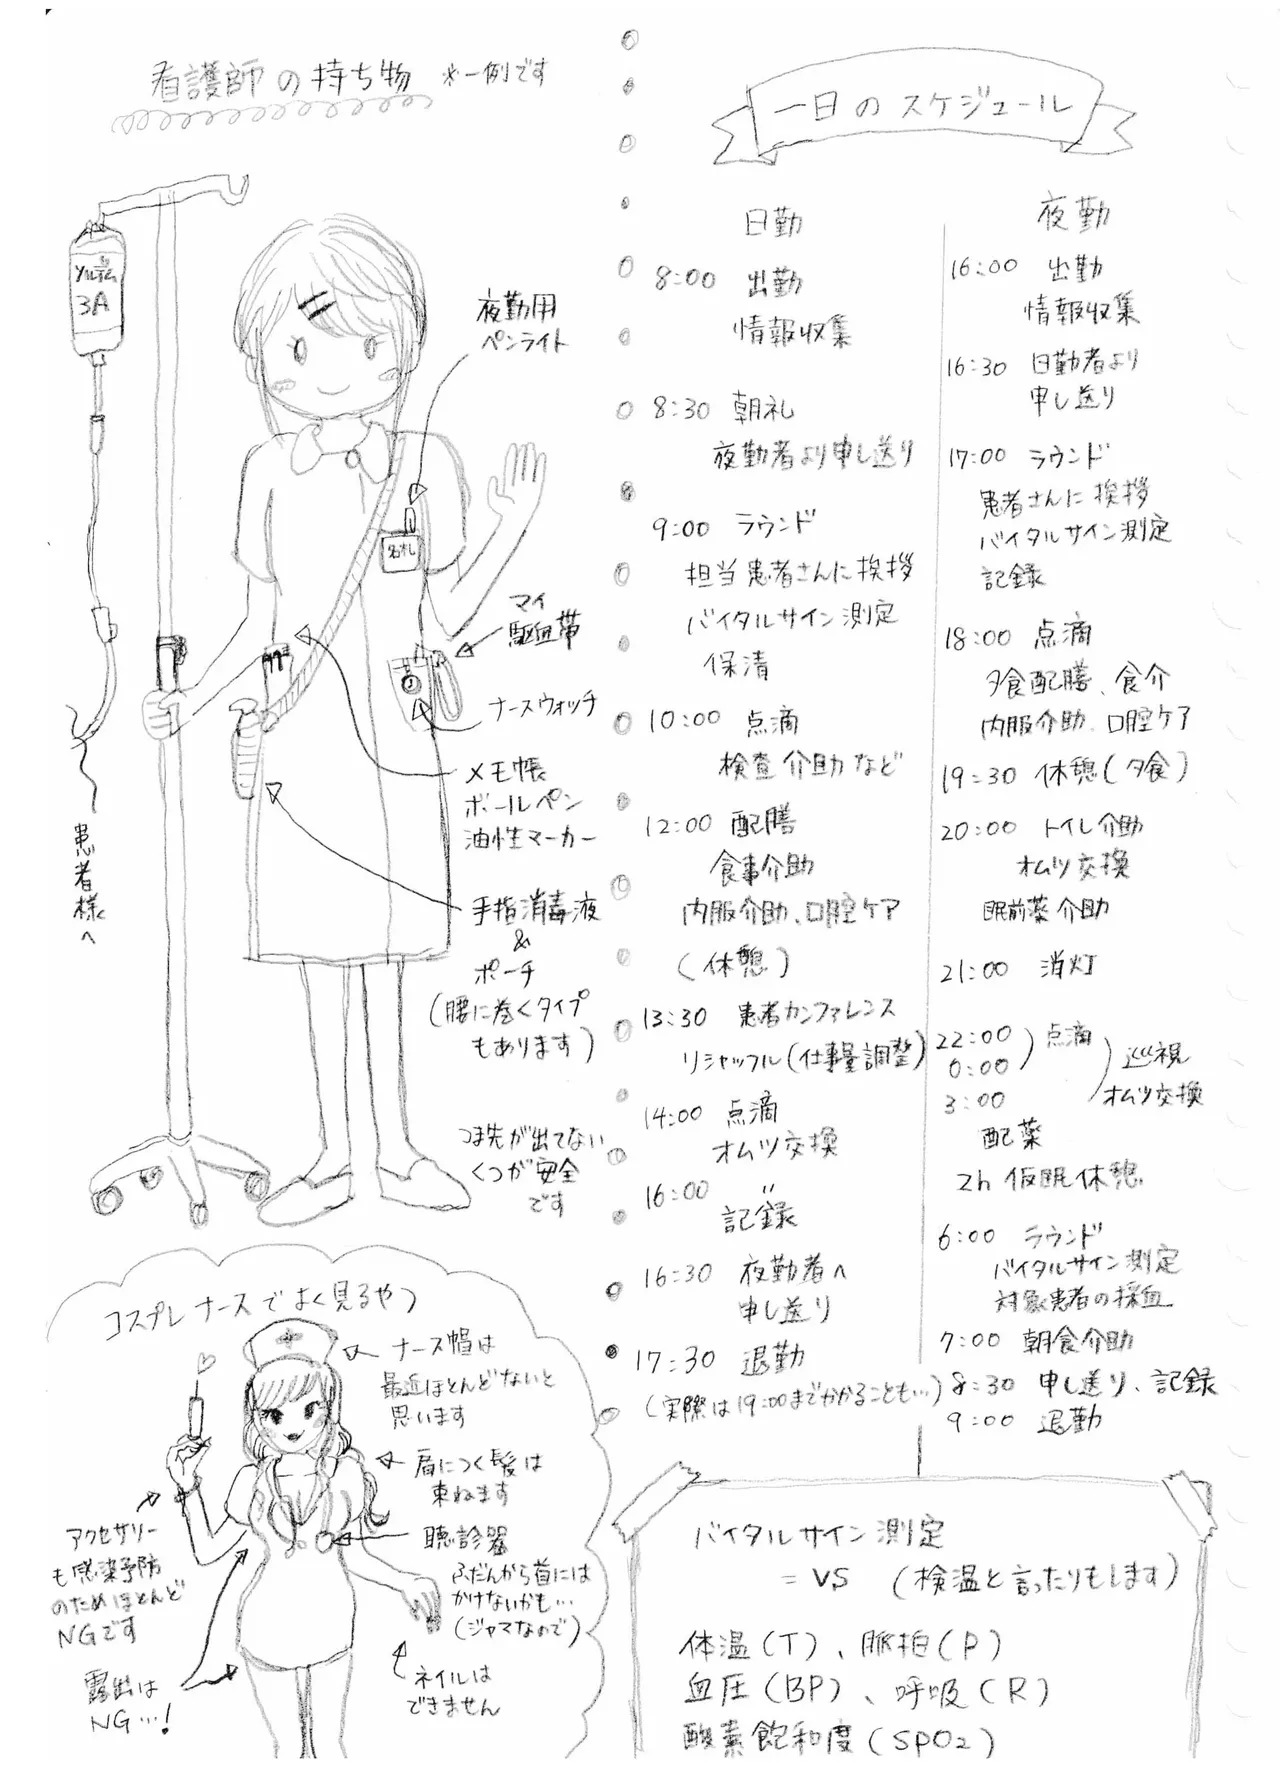 看護師の持ち物 ※一例です
ソルデム
3A
夜勤用
ペンライト
名札
マイ
駆血帯
ナースウォッチ
メモ帳
ボールペン
油性マーカー
手指消毒液
&
ポーチ
(腰に巻くタイプ
もあります)
患者様へ
つま先が出てない
くつが安全
です
コスプレナースでよく見るやつ
ナース帽は
最近ほとんどないと
思います
肩につく髪は
束ねます
聴診器
ふだんから首には
かけないかも…
(ジャマなので)
ネイルは
できません
アクセサリー
も感染予防
のためほとんど
NGです
露出は
NG…!
一日のスケジュール
日勤
8:00 出勤
情報収集
8:30 朝礼
夜勤者より申し送り
9:00 ラウンド
担当患者さんに挨拶
バイタルサイン測定
保清
10:00 点滴
検査介助など
12:00 配膳
食事介助
内服介助、口腔ケア
(休憩)
13:30 患者カンファレンス
リシャッフル(仕事量調整)
14:00 点滴
オムツ交換
16:00 〃
記録
16:30 夜勤者へ
申し送り
17:30 退勤
(実際は19:00までかかることも…)
夜勤
16:00 出勤
情報収集
16:30 日勤者より
申し送り
17:00 ラウンド
患者さんに挨拶
バイタルサイン測定
記録
18:00 点滴
夕食配膳、食介
内服介助、口腔ケア
19:30 休憩(夕食)
20:00 トイレ介助
オムツ交換
眠前薬介助
21:00 消灯
22:00
0:00 )点滴
3:00 )巡視
オムツ交換
配薬
2h 仮眠休憩
6:00 ラウンド
バイタルサイン測定
対象患者の採血
7:00 朝食介助
8:30 申し送り、記録
9:00 退勤
バイタルサイン測定
=VS (検温と言ったりもします)
体温(T)、脈拍(P)
血圧(BP)、呼吸(R)
酸素飽和度(SPO2)